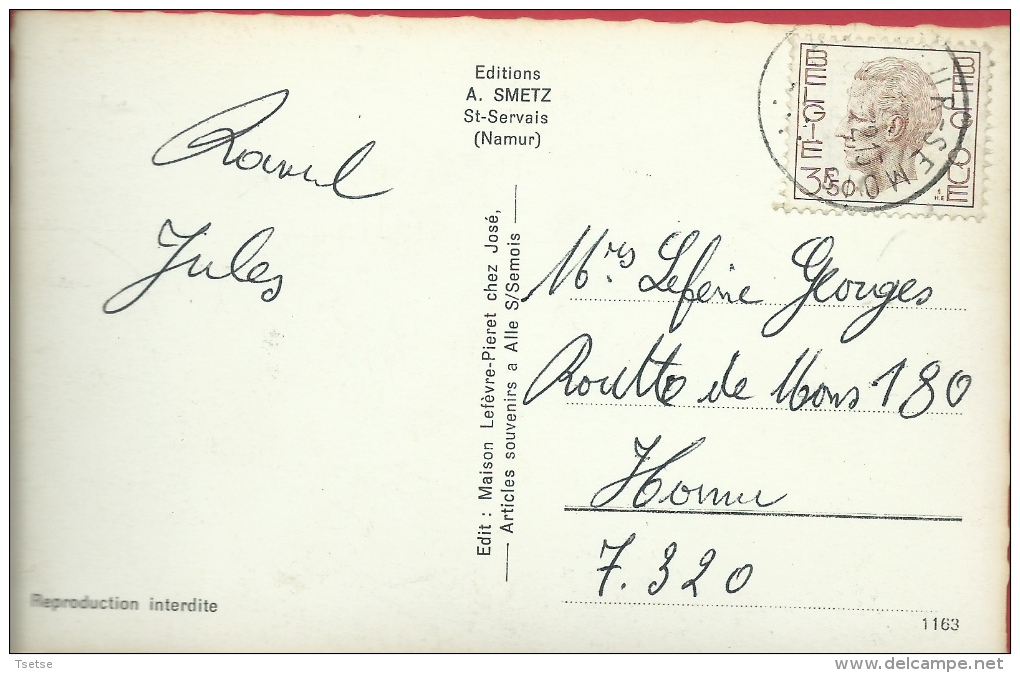 Raoul
Jules
Editions
A. SMETZ
St-Servais
(Namur)
Edit : Maison Lefèvre-Pieret chez José,
Articles souvenirs a Alle S/Semois
BELGIE
BELGIQUE
3F50
UR-SEMO
Mrs Lefène Georges
Routte de Mons 180
Hornu
7.320
Reproduction interdite
1163
Tsetse
www.delcampe.net